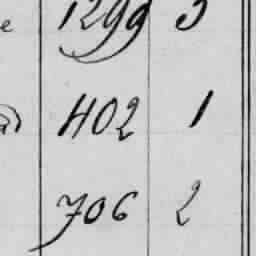 e 1299 5
402 1
706 2